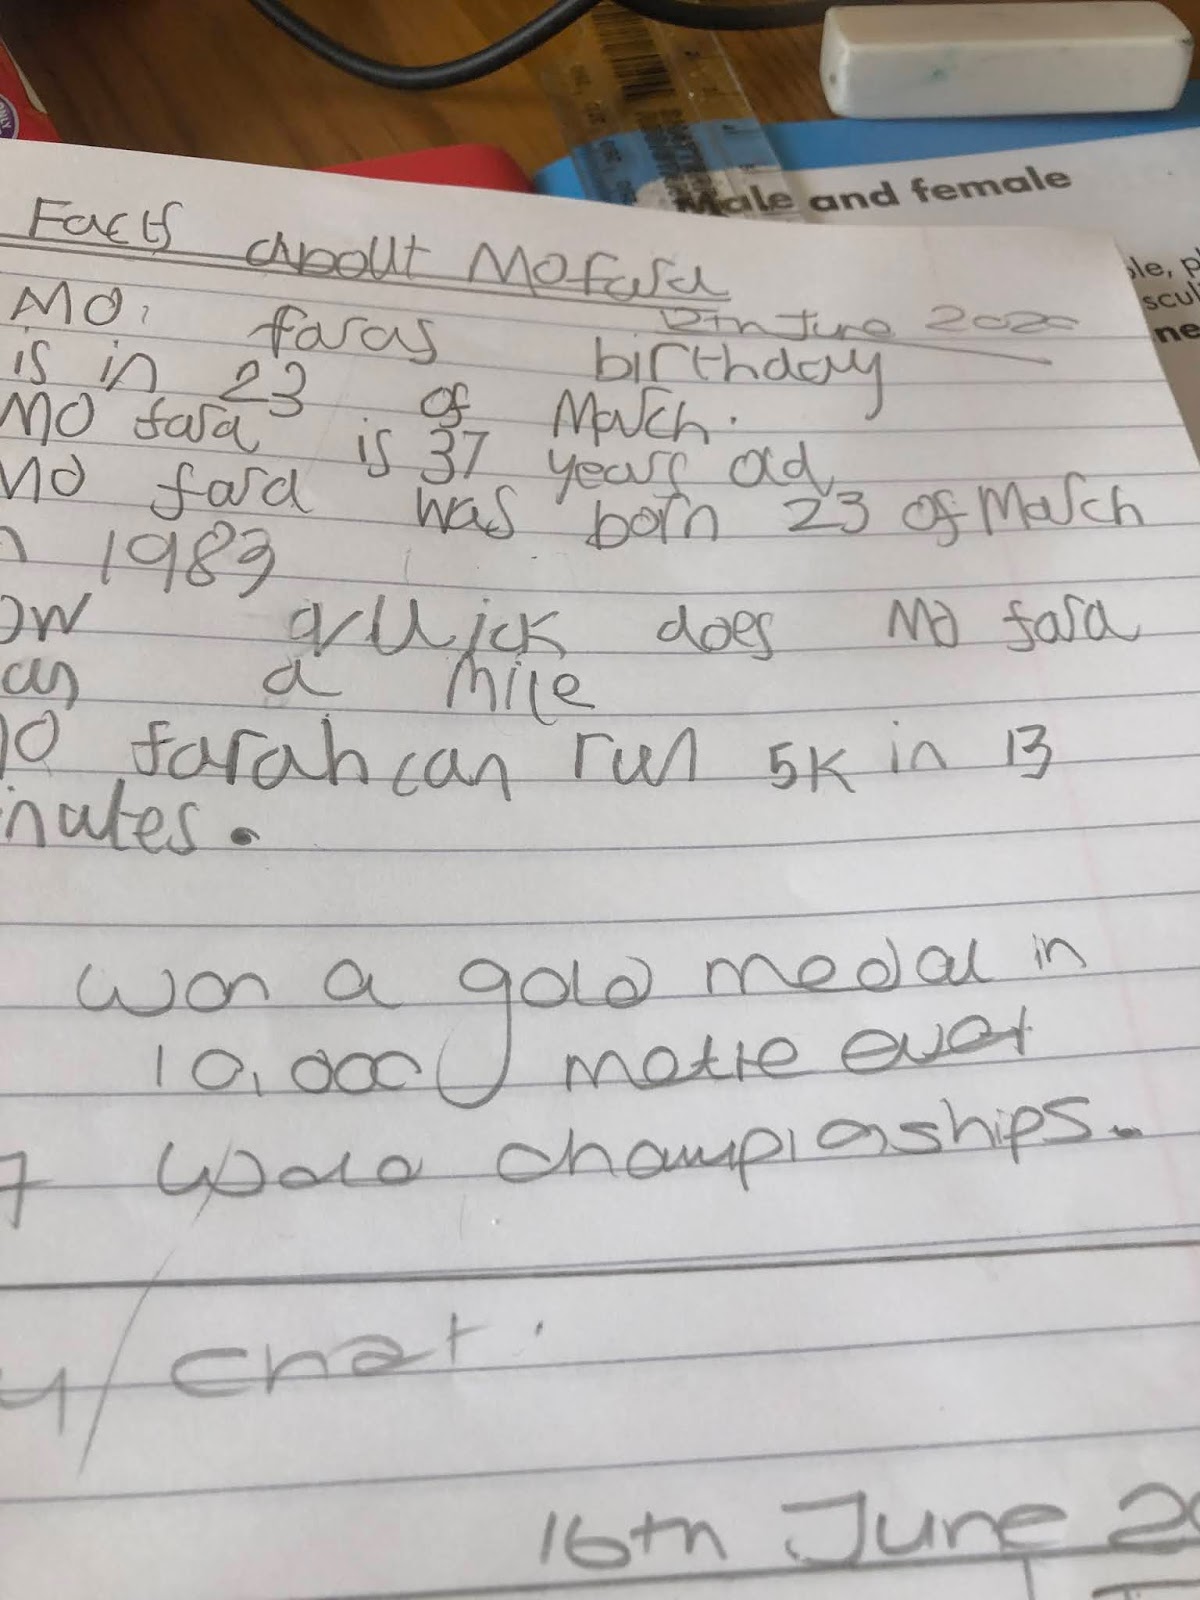 ONLY
Male and female
Facts About Mo fara
12th June 2020
Mo. faras birthday
is in 23 of March.
Mo fara is 37 years old
Mo fara was born 23 of March
1983
ow quick does Mo fara
a mile
farah can run 5K in 13
inutes.
won a gold medal in
10,000 metre
championships.
16th June 20